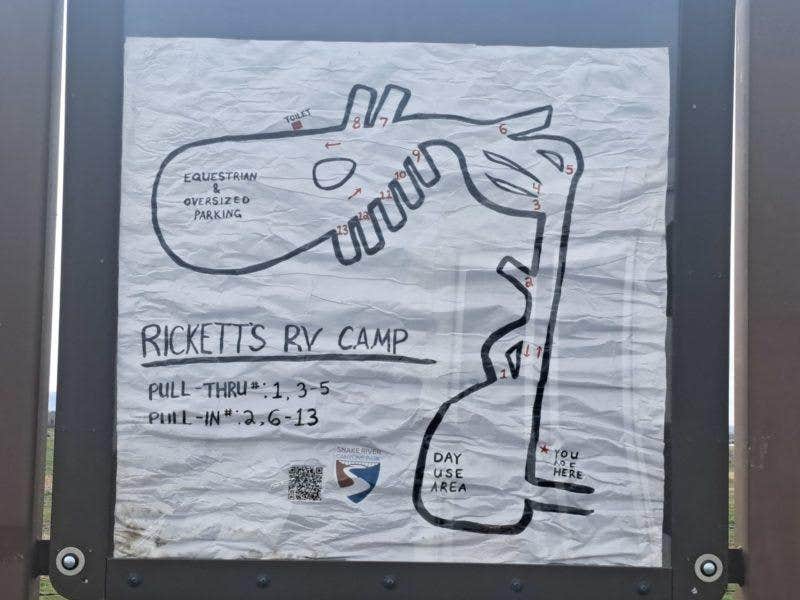 TOILET
8 7
6
9
5
EQUESTRIAN
&
OVERSIZED
PARKING
10
4
11
3
12
13
2
RICKETT'S RV CAMP
1
PULL-THRU #: 1, 3-5
PULL-IN #: 2, 6-13
SNAKE RIVER
DAY
USE
AREA
YOU
ARE
HERE